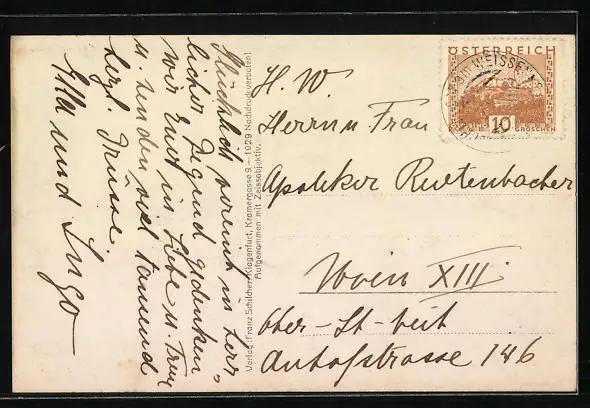 Glücklich vereint in herr-
licher Gegend gedenken
wir Euer in Liebe u. Treue
u. senden viel tausend
herzl. Grüsse.
Ella und Hugo
Verlag: Franz Schilcher, Klagenfurt, Kramergasse 9 – 1929 Nachdruck verboten!
Aufgenommen mit Zeissobjektiv.
ÖSTERREICH
WEISSENSEE
10
GROSCHEN
H. W.
Herrn u Frau
Apotheker Ruttenbacher
Wien XIII
Ober-St-Veit
Auhofstrasse 146